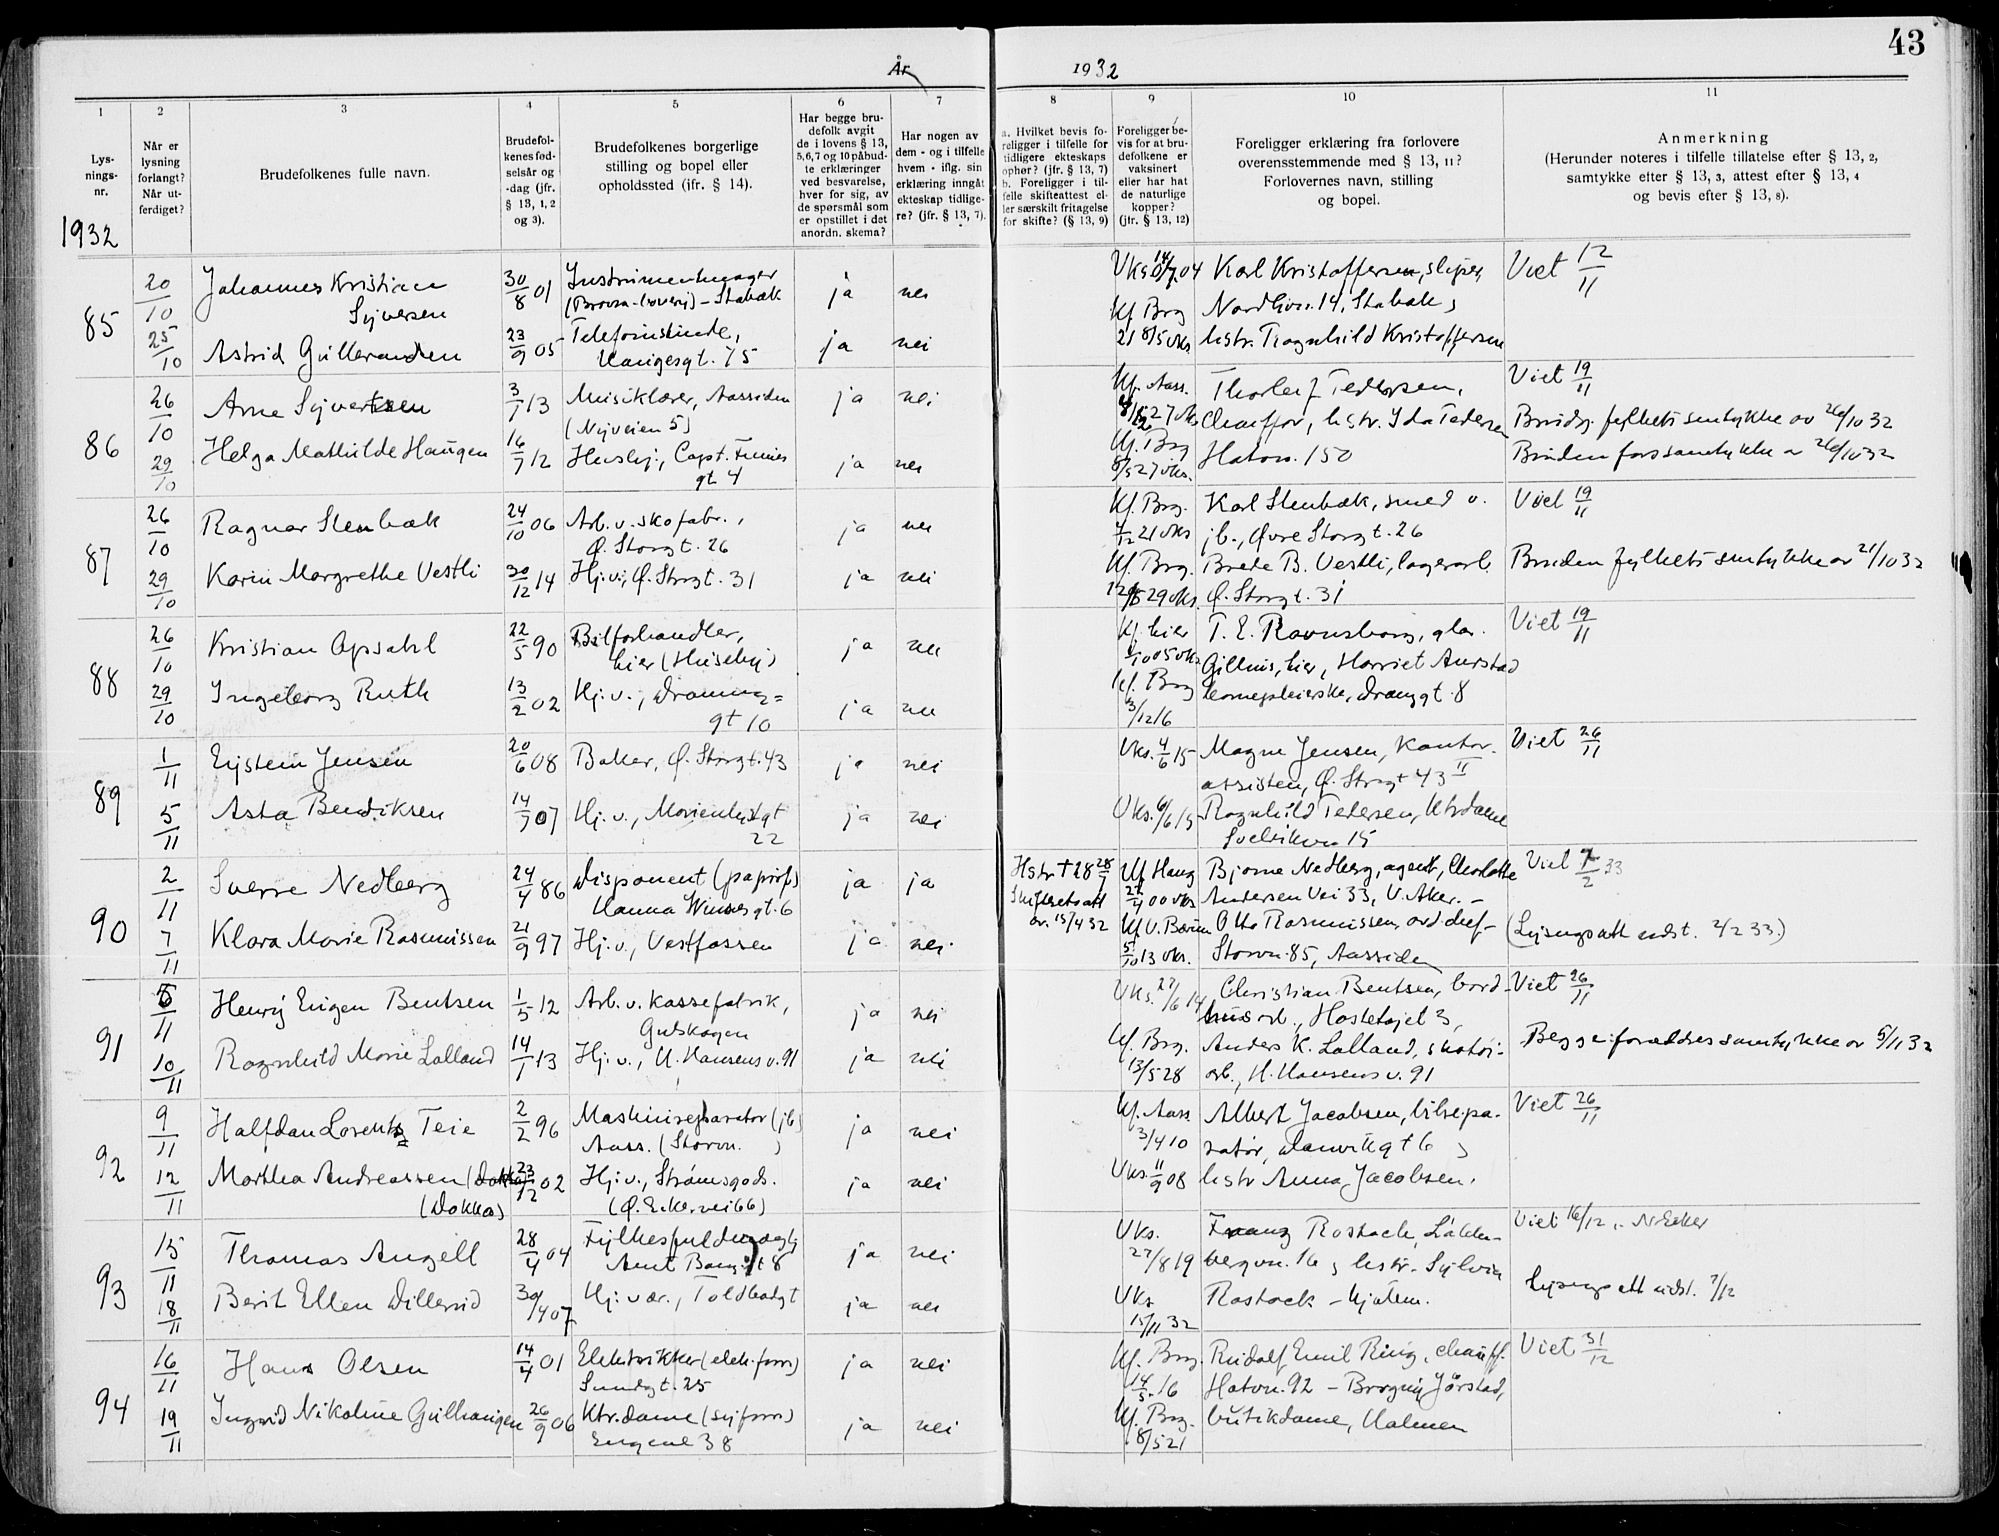 43
År 1932
1
Lys-
nings-
nr.
2
Når er
lysning
forlangt?
Når ut-
ferdiget?
3
Brudefolkenes fulle navn.
4
Brudefol-
kenes fød-
selsår og
-dag (jfr.
§ 13, 1, 2
og 3).
5
Brudefolkenes borgerlige
stilling og bopel eller
opholdssted (ifr. § 14).
6
Har begge bru-
defolk avgit
de i lovens § 13,
5,6,7 og 10 påbud-
te erklæringer
ved besvarelse,
hver for sig, av
de spørsmål som
er opstillet i det
anordn. skema?
7
Har nogen av
dem - og i tilfelle
hvem - iflg. sin
erklæring inngåt
ekteskap tidlige-
re? (jfr. § 13, 7).
8
a. Hvilket bevis fo-
religger i tilfelle for
tidligere ekteskaps
ophør? (jfr. § 13, 7)
b. Foreligger i til-
felle skifteattest el-
ler særskilt fritagelse
for skifte? (§ 13, 9)
9
Foreligger be-
vis for at bru-
defolkene er
vaksinert
eller har hat
de naturlige
kopper?
(jfr. § 13, 12)
10
Foreligger erklæring fra forlovere
overensstemmende med § 13, 11?
Forlovernes navn, stilling
og bopel.
11
Anmerkning
(Herunder noteres i tilfelle tillatelse efter § 13, 2,
samtykke efter § 13, 3, attest efter § 13, 4
og bevis efter § 13, 8).
1932
85
20/10 Johannes Kristian 30/8 01 Instrumentmager ja nei Karl Kristoffersen, sliper, Viet 12/11
Syversen - Stabæk Kf Brg 14, Stabæk,
25/10 Astrid Gulleranden 23/9 05 Telefonistinde, ja nei 21 8/5 vks hstr. Ragnhild Kristoffersen
Haugesgt. 75
86
26/10 Arne Syvertsen 3/1 13 Musiklærer, Aassiden ja nei Kf. Aass. Thorleif Pedersen, Viet 19/11
(Nyveien 5) Chauffør, hstr. Ida Pedersen Brudg. fylkets samtykke av 26/10 32
29/10 Helga Mathilde Haugen 16/7 12 Hushj., Capt. ja nei Kf. Brg Havn. 150 Bruden 26/10 32
gt. 4 8/5 27 vks.
87
26/10 Ragnar Stenbæk 24/10 06 Arb. v. skofabr., ja nei Kf. Brg. Karl Stenbæk, smed v. Viet 19/11
Ø. Storgt. 26 21 vks jb., Øvre Storgt. 26
29/10 Karin Margrethe Vestli 30/12 14 Hj. v., Ø. Storgt. 31 ja nei Kf. Brg. Brede B. Vestli, lagerarb. Bruden fylkets samtykke av 21/10 32
29 vks. Ø. Storgt. 31
88
26/10 Kristian Opsahl 22/5 90 Bilforhandler, ja nei Kf. hier T. E. Ravnsborg, Viet 19/11
hier (Huseby) 05 vks hier, Harriet Aurstad
29/10 Ingeborg Ruth 13/2 02 Hj. v., Dronning= ja nei Kf. Brg
gt 10 3/12 16
89
1/11 Eystein Jensen 20/6 08 Baker, Ø. Storgt. 43 ja nei Vks. 4/6 15 Magne Jensen, Kontor- Viet 26/11
assisten, Ø. Storgt 43 II
5/11 Asta Bendiksen 14/7 07 Hj. v., Marienlystgt ja nei Vks. 6/6 15 Ragnhild Pedersen, Ktrdame
22 15
90
2/11 Sverre Nedberg 24/4 86 Disponent (papirf.) ja ja Hstr. † 28 28/1 Kf Haug Bjarne Nedberg, agent, Charlotte Viet 7/2 33
Hanna Winsnesgt. 6 Skifteretsatt 00 vks Andersen Vei 33, V. Aker. -
7/11 Klara Marie Rasmussen 21/9 97 Hj. v., Vestfossen ja nei av. 15/4 32 Kf V. Bærum Otto Rasmussen, (Lysningsatt. utst. 2/2 33.)
5/10 13 vks. Storvn. 85, Aassiden
91
5/11 Henry Eugen Bentsen 1/5 12 Arb. v. kassefabrik, ja nei Vks. 27/6 14 Christian Bentsen, bord- Viet 26/11
Gulskogen 3,
10/11 Ragnhild Marie Lolland 14/1 13 Hj. v., H. Hansens v. 91 ja nei Kf. Brg. Anders K. Lolland, skotøi- Begge: forældres samtykke av 5/11 32
13/5 28 arb., H. Hansens v. 91
92
9/11 Halfdan Lorentz Teie 2/2 96 Maskinreparatør (jb) ja nei Kf. Aass Albert Jacobsen, bilrepa- Viet 26/11
Aass. (Storvn. ) 3/4 10 ratør, Danvikgt 6,
12/11 Martha Andreassen (Dokka) 23/12 02 Hj. v., Strømsgods. ja nei Vks. 11/9 08 hstr Anna Jacobsen.
(Dokka) (Ø. Eikervei 66)
93
15/11 Thomas Angell 28/4 04 Fylkesfuldmægtig ja nei Vks. Franz Rostock, Viet 16/12, N. Eiker
8 27/8 19 bergvn. 16, hstr. Sylvia
18/11 Berit Ellen Dillerud 30/4 07 Hj. vær., Toldbodgt ja nei Vks Rostock - Hjalem. Lysnings att utst. 7/12
15/11 32
94
16/11 Hans Olsen 14/4 01 Elektrikker (elek. forr) ja nei Kf. Brg. Rudolf Emil Ring, chauff. Viet 31/12
Sundgt. 25 14/5 16 Havn. 92 - Borgny Jørstad,
19/11 Ingrid Nikoline Gulhaugen 26/9 06 Ktr. dame (syforr) ja nei Kf. Brg. butikdame, Holmen
Engene 38 8/5 21